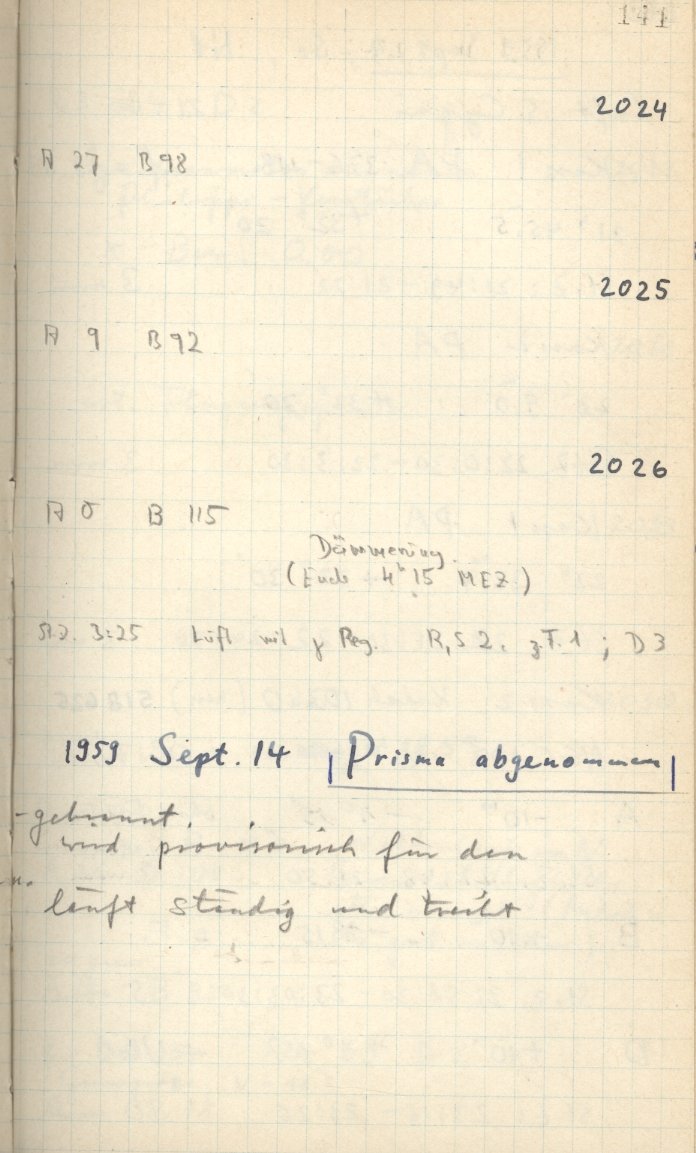 141
2024
A 27 B 98
2025
A 9 B 92
2026
A 0 B 115
Dämmerung
(Ende 4h 15 MEZ)
3:25 Luft mit Reg. R, S 2. z.T. 1; D 3
1959 Sept. 14 Prisma abgenommen
-gebrannt.
wird provisorisch für den
läuft ständig und treibt